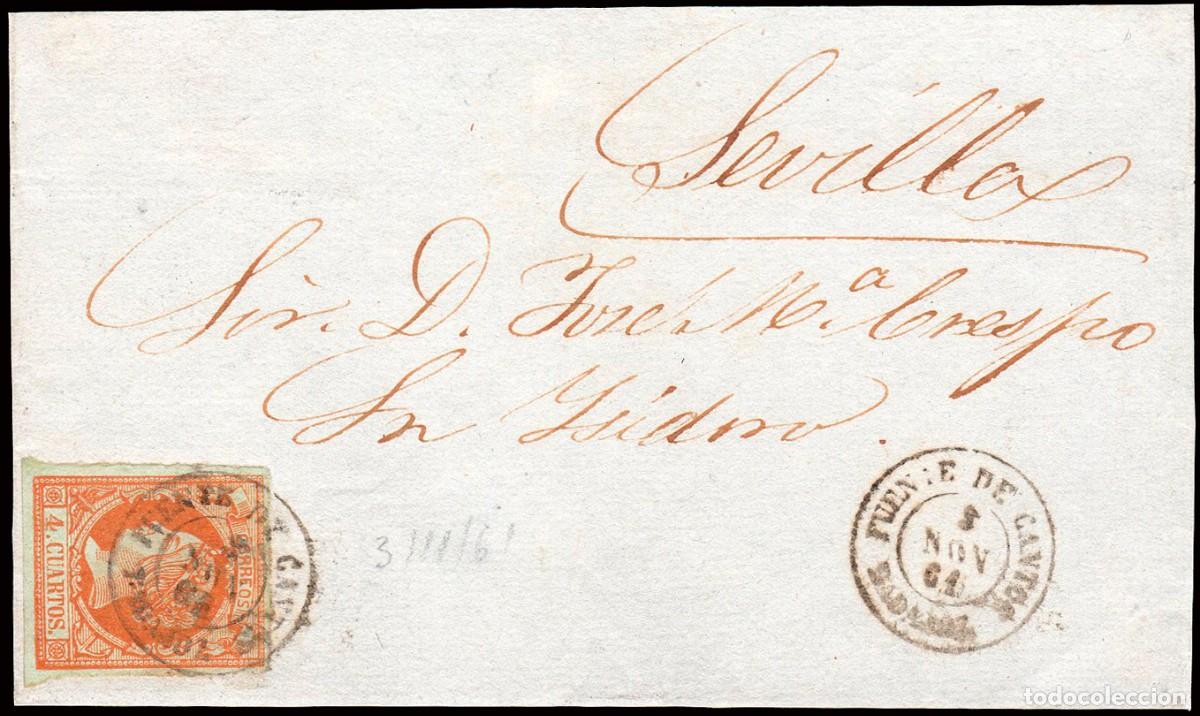 Sevilla
Sr. D. José Mª Crespo
Sn Isidoro.
FUENTE DE CANTOS
3
NOV
61
BADAJOZ
3/11/61
CORREOS
4. CUARTOS.
FUENTE DE CANTOS
todocoleccion